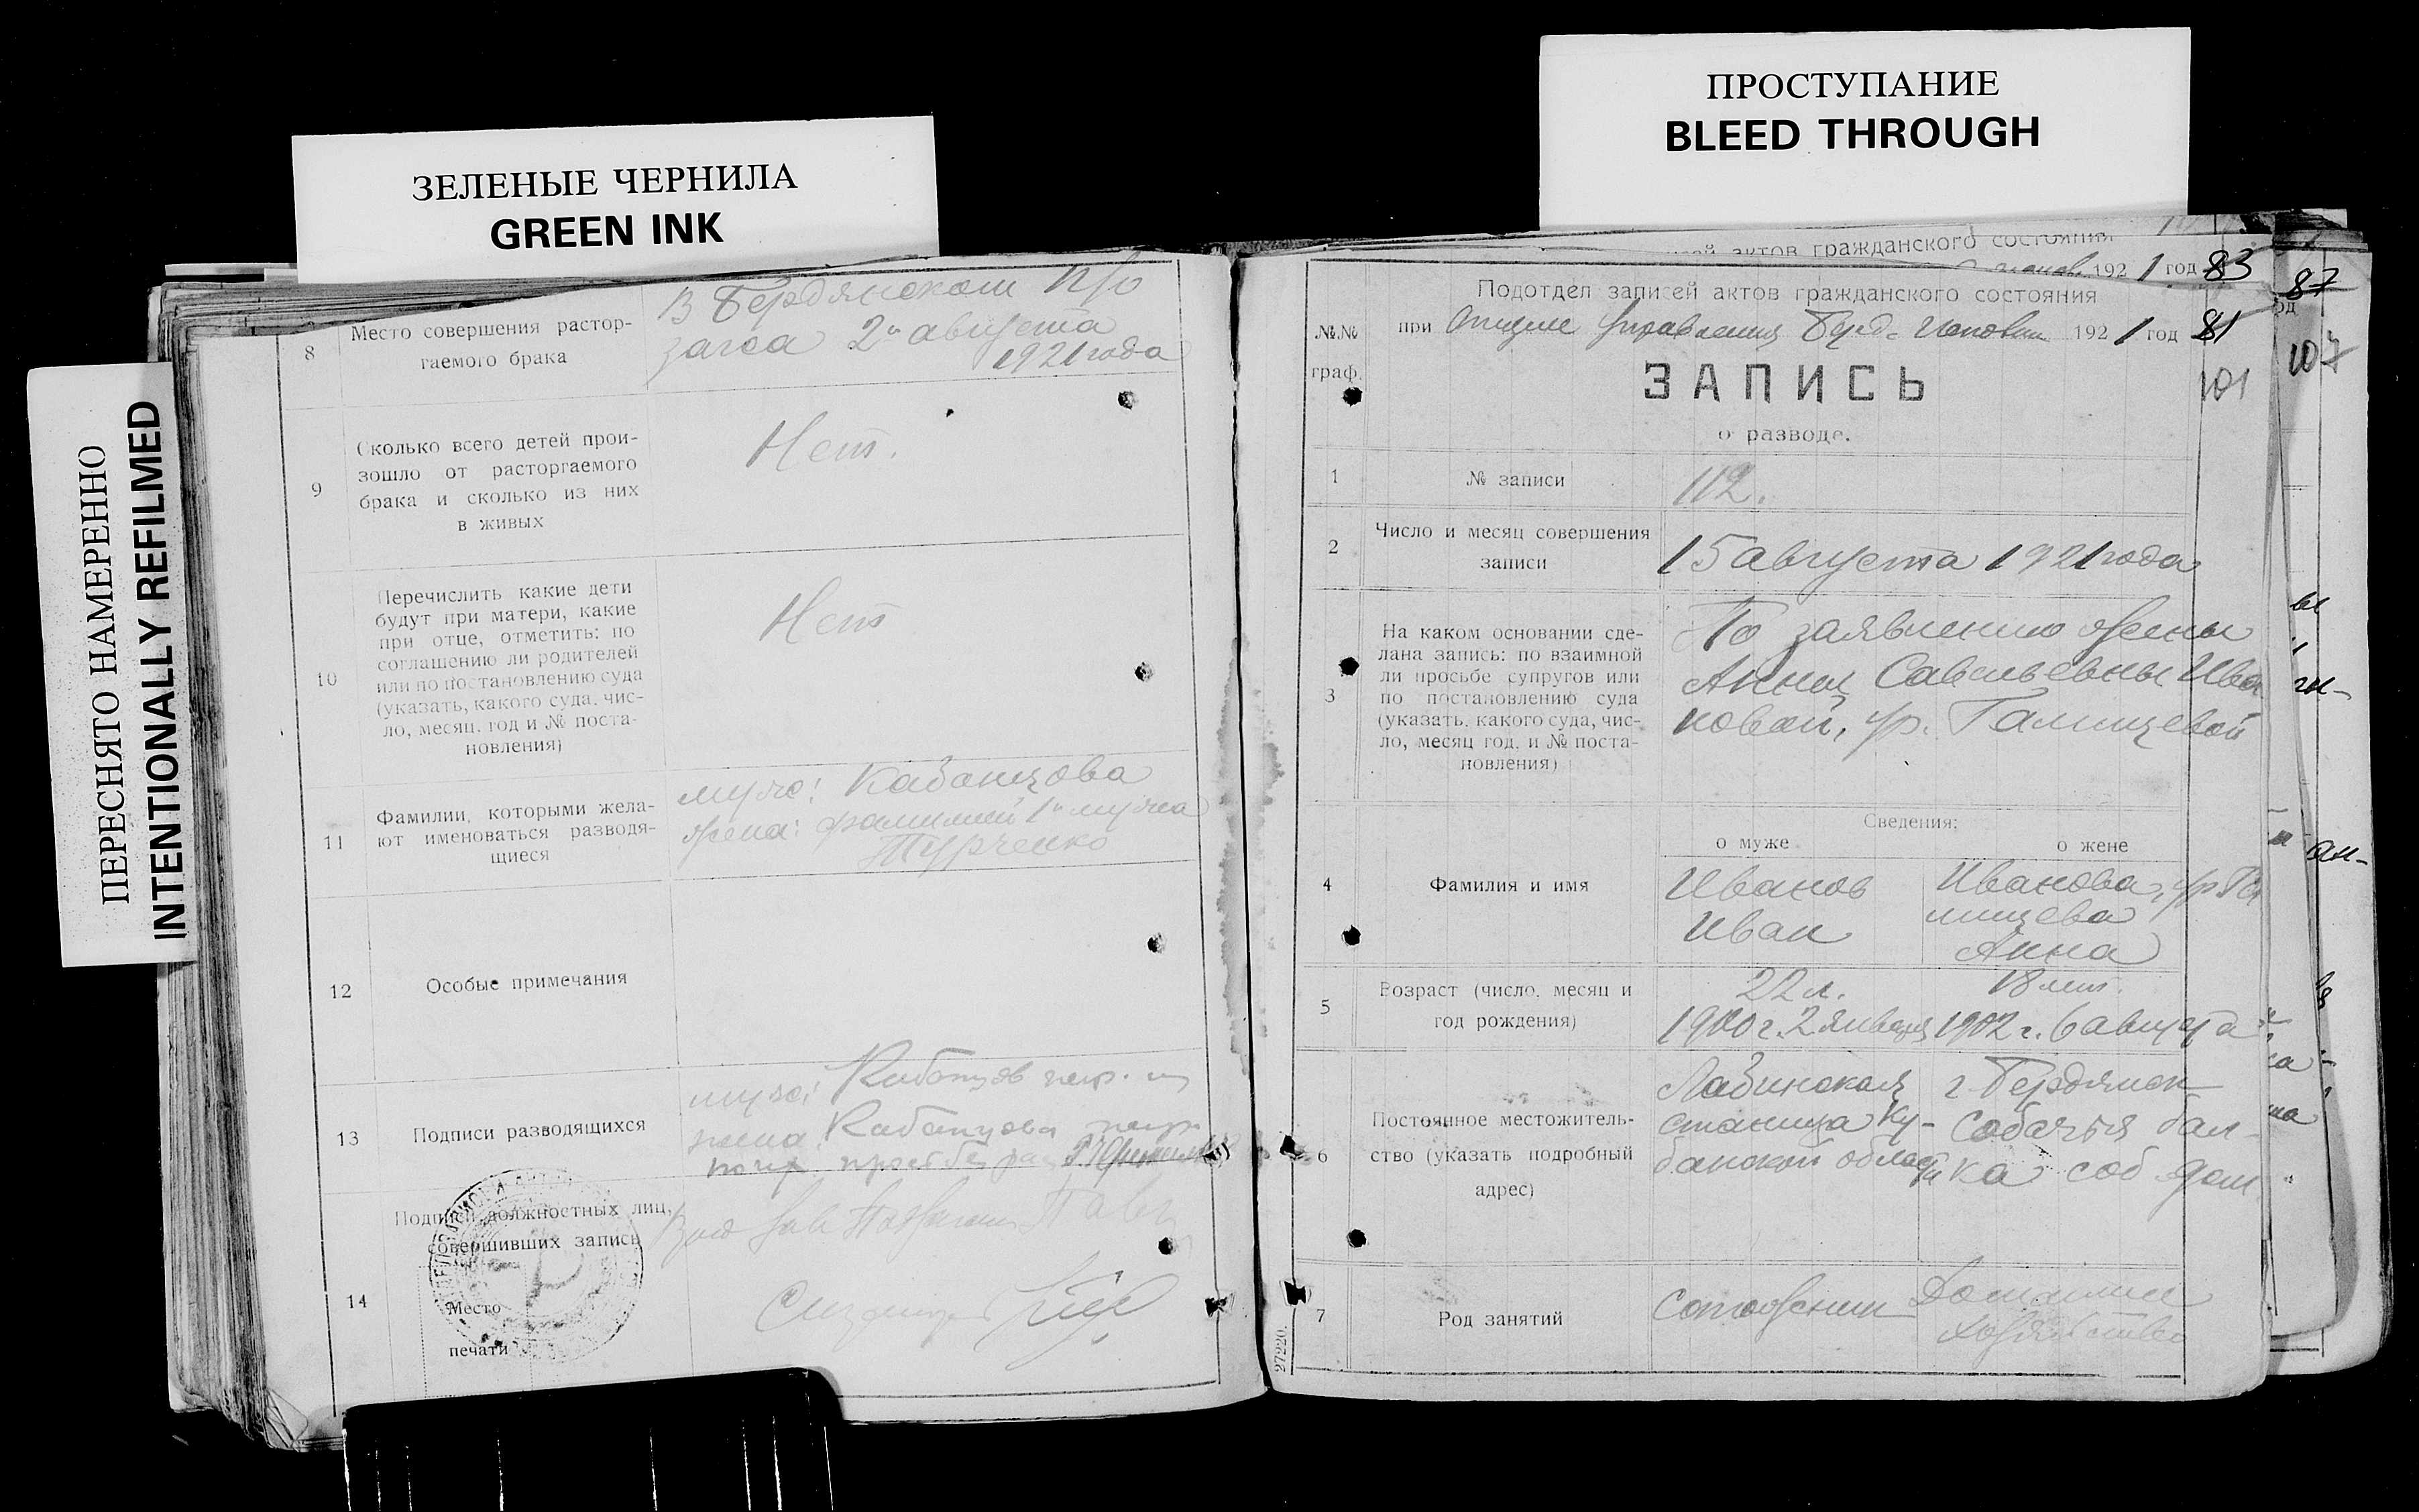 ЗЕЛЕНЫЕ ЧЕРНИЛА
GREEN INK
ПРОСТУПАНИЕ
BLEED THROUGH
ПЕРЕСНЯТО НАМЕРЕННО
INTENTIONALLY REFILMED
8
Место совершения растор-
гаемого брака
В Бердянском п/о
загса 2го августа
1921 года
9
Сколько всего детей прои-
зошло от расторгаемого
брака и сколько из них
в живых
Нет.
10
Перечислить какие дети
будут при матери, какие
при отце, отметить: по
соглашению ли родителей
или по постановлению суда
(указать, какого суда, чис-
ло, месяц, год и № поста-
новления)
Нет
11
Фамилии, которыми жела-
ют именоваться разводя-
щиеся
муж: Кабанцова
жена: фамилией 1го мужа
Турченко
12
Особые примечания
13
Подписи разводящихся
муж: Кабанцов негр.
жена Кабанцова негр.
14
Подписи должностных лиц,
совершивших запись
Место
печати
актов гражданского состояния
192 1 год 83
87
107
Подотдел записей актов гражданского состояния
№№
граф.
при Отделе Управления Берд. Исполкома 192 1 год 81
101
ЗАПИСЬ
о разводе.
1
№ записи
112.
2
Число и месяц совершения
записи
15 августа 1921 года
3
На каком основании сде-
лана запись: по взаимной
ли просьбе супругов или
по постановлению суда
(указать, какого суда, чис-
ло, месяц год, и № поста-
новления)
По заявлению жены
Анны Савельевны Ива
новой, ур. Галицевой
Сведения:
о муже
о жене
4
Фамилия и имя
Иванов
Иван
Иванова, ур. Га
лицева
Анна
5
Возраст (число, месяц и
год рождения)
22 л.
1900 г. 2 января
18 лет.
1902 г. 6 августа
6
Постоянное местожитель-
ство (указать подробный
адрес)
Лабинская
станица Ку-
банской области
г. Бердянск
Собачья бал-
ка соб. дом.
7
Род занятий
Домашнее
хозяйство
27220.